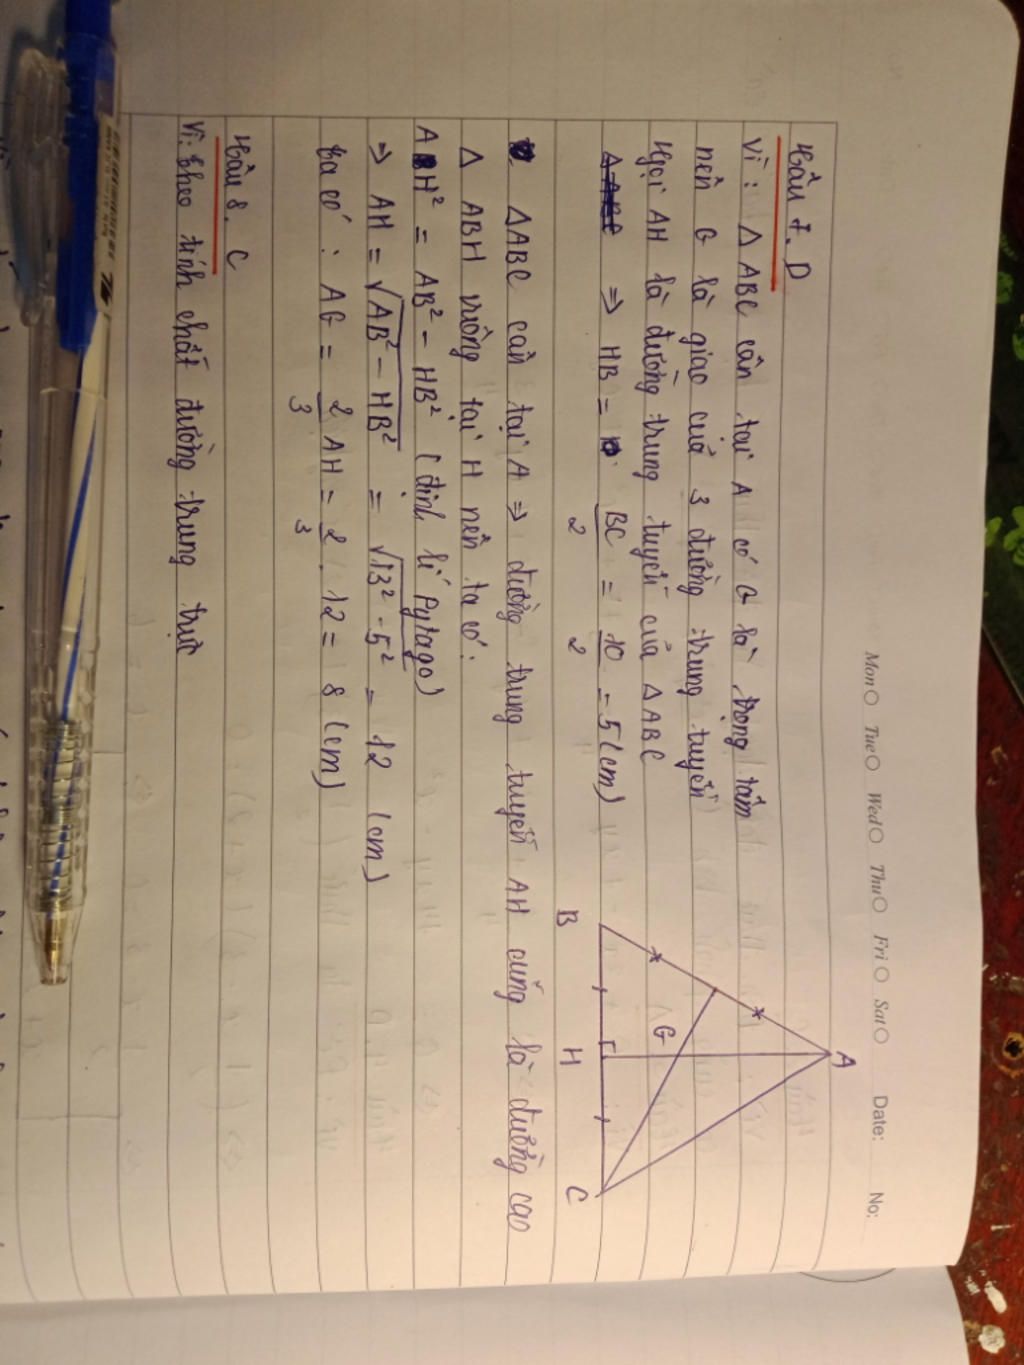 Mon Tue Wed Thu Fri Sat Date: No:
Câu 7. D
Vì: Δ ABC cân tại A có G là trọng tâm
nên G là giao của 3 đường trung tuyến
Gọi AH là đường trung tuyến của Δ ABC
⇒ HB = BC/2 = 10/2 = 5 (cm)
A
G
B H C
ΔABC cân tại A ⇒ đường trung tuyến AH cũng là đường cao
Δ ABH vuông tại H nên ta có:
AH² = AB² - HB² (định lí Pytago)
⇒ AH = √AB² - HB² = √13² - 5² = 12 (cm)
Ta có: AG = 2/3 AH = 2/3 . 12 = 8 (cm)
Câu 8. C
Vì: theo tính chất đường trung trực